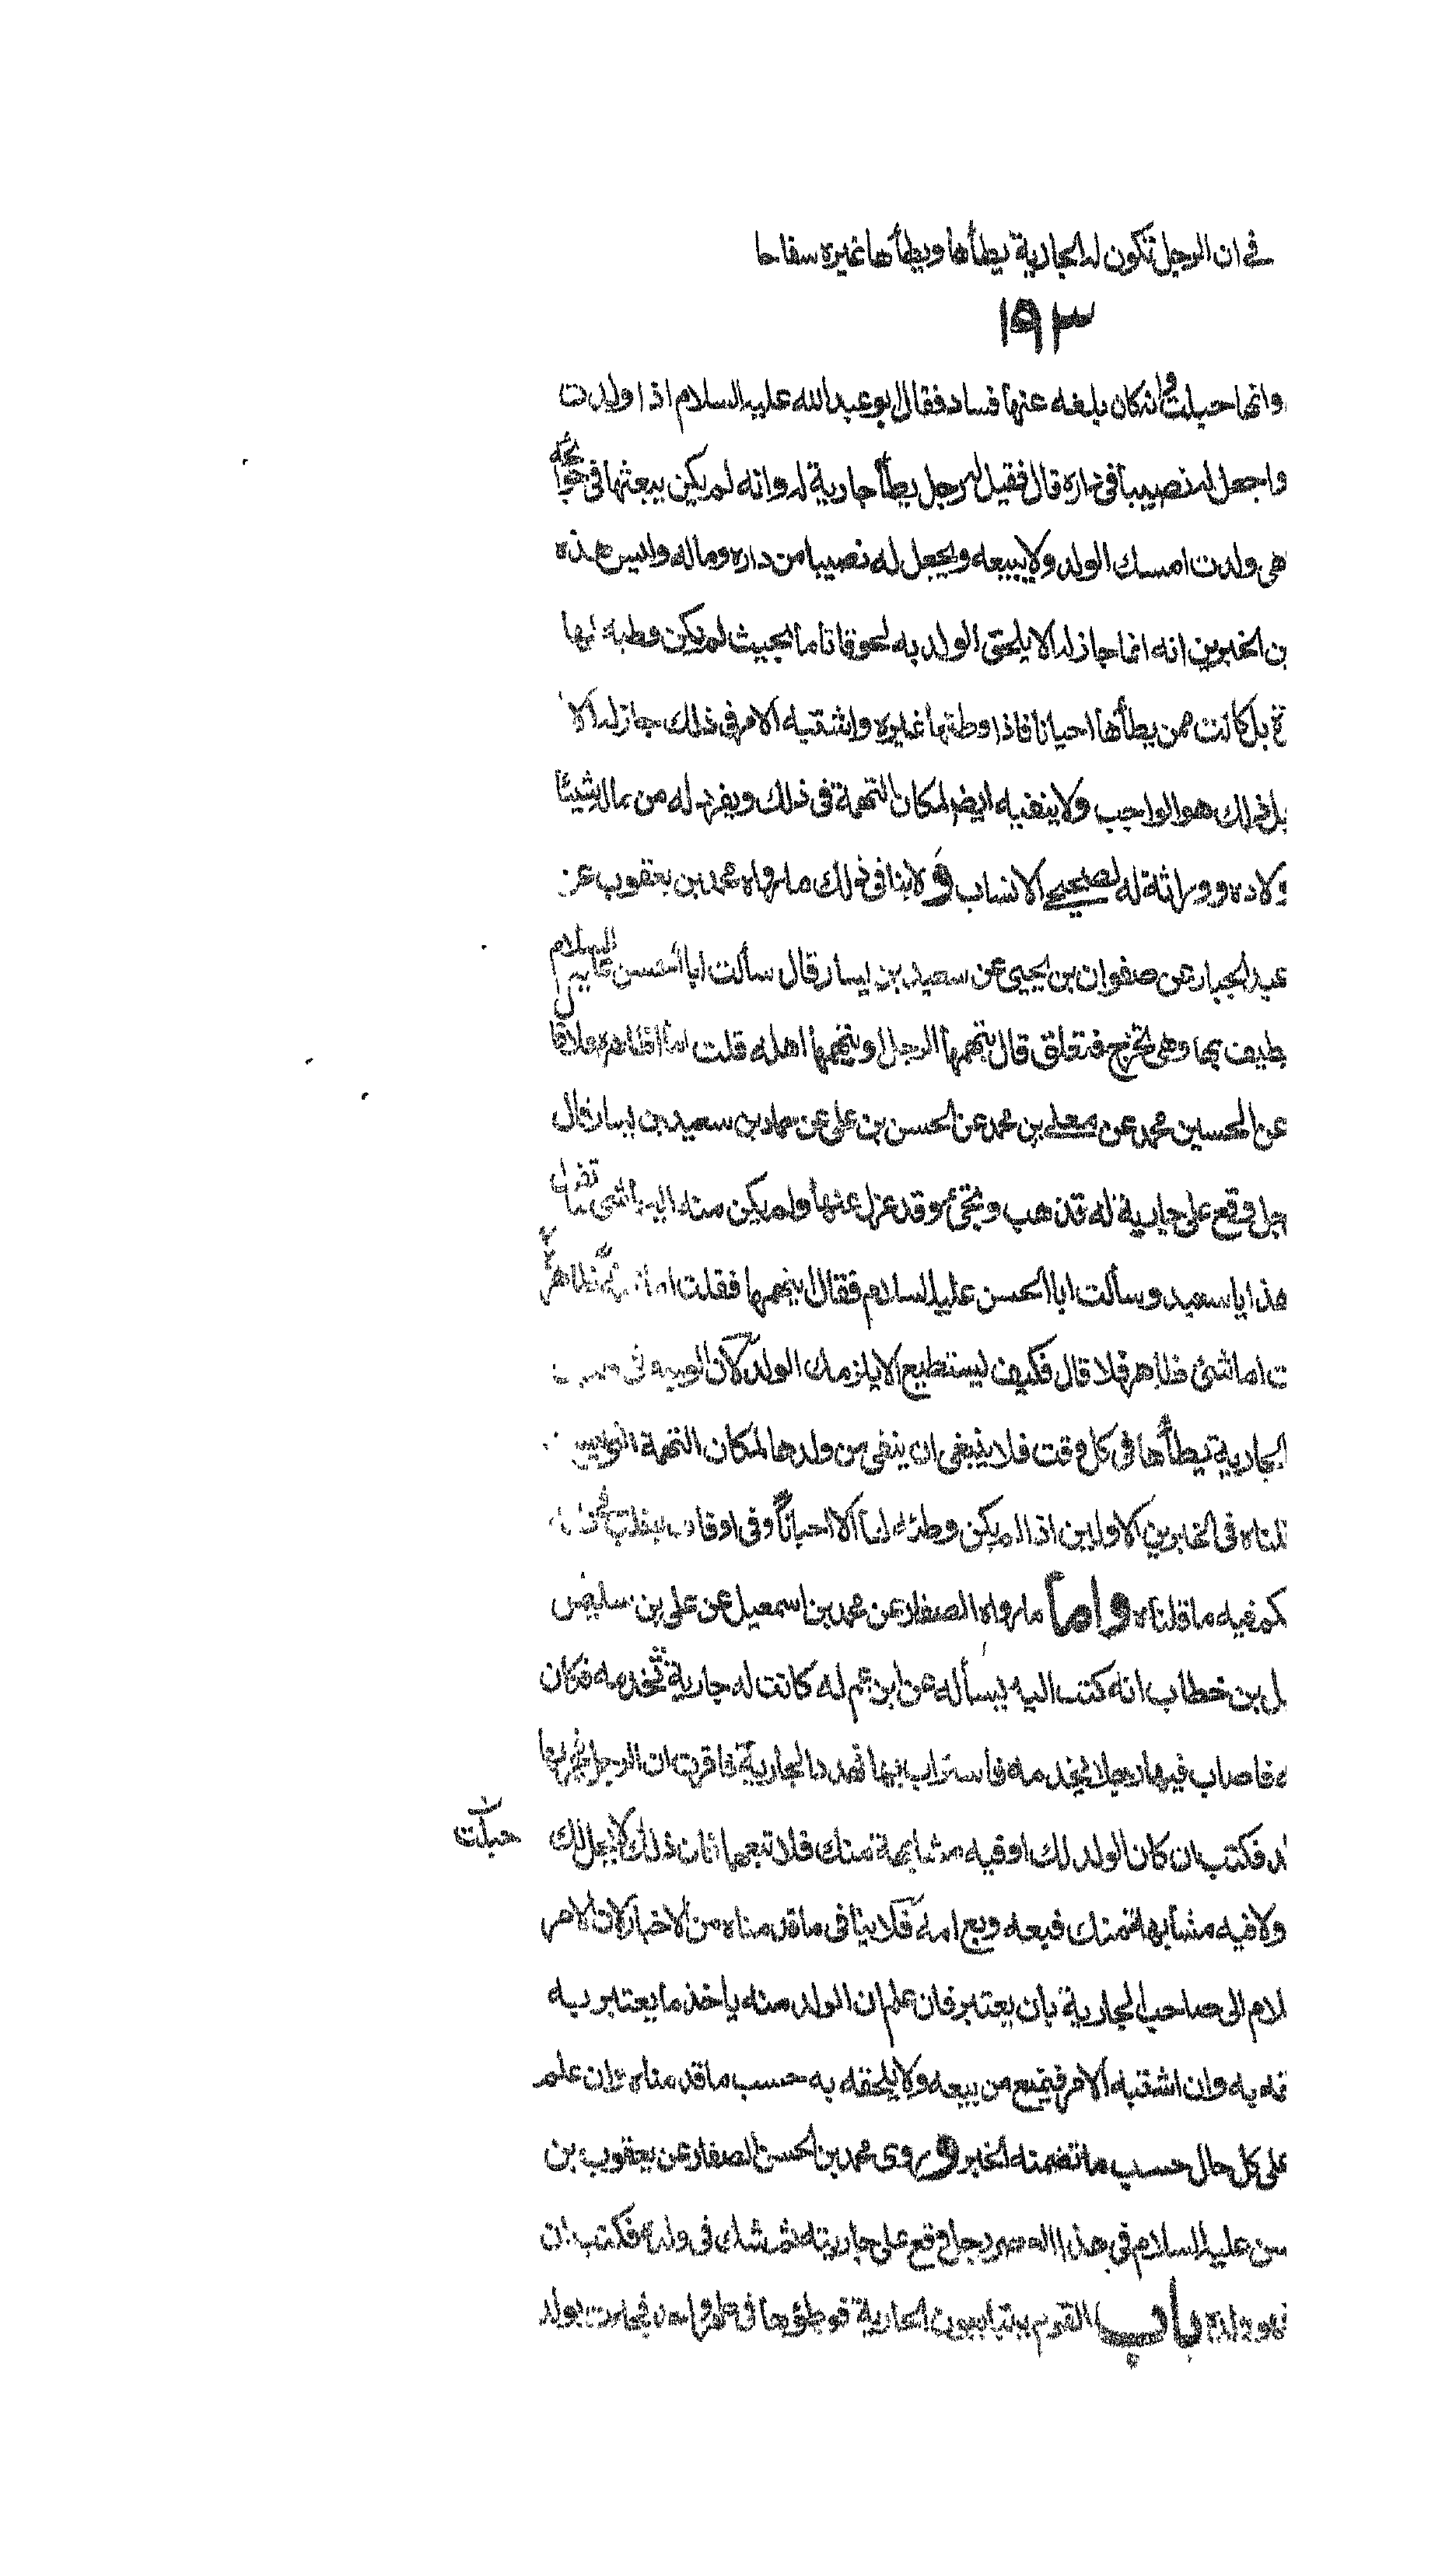 في ان الرجل تكون له الجارية يطأها ويطأها غيره سفاحا
١٩٣
وانها حبلت وانه كان بلغه عنها فساد فقال ابو عبد الله عليه السلام اذا ولدت
واجعل له نصيبا في داره قال فقيل له رجل يطأ جارية له وانه لم يكن يبعثها في حوائجه
هي ولدت امسك الولد ولا يبيعه ويجعل له نصيبا من داره وماله وليس هذه
ن الخبرين انه انما جاز له الا يلحق الولد به لحوقا تاما بحيث لم يكن وطيه لها
ة بل كانت ممن يطأها احيانا فاذا وطئها غيره واشتبه الامر في ذلك جاز له الا
بل ذلك هو الواجب ولا ينفيه ايضا لمكان التهمة في ذلك ويفرد له من ماله شيئا
ولاده ووراثة له لصحيحي الانساب ولا ينافي ذلك ما رواه محمد بن يعقوب عن
عبد الجبار عن صفوان بن يحيى عن سعيد بن يسار قال سألت ابا الحسن عليه السلام
يطيف بها وهي تخرج فتعلق قال يتهمها الرجل او يتهمها اهله قلت اما ظاهرة فلا قال
عن الحسين محمد عن معلى بن محمد عن الحسن بن علي عن حماد بن سعيد بن يسار قال
جل وقع على جارية له تذهب وتجئ وقد عزل عنها ولم يكن منه اليها شئ
هذا يا سعيد وسألت ابا الحسن عليه السلام فقال ايتهمها فقلت اما تهمة ظاهرة
ت اما شئ ظاهر فلا قال فكيف تستطيع الا يلزمك الولد لان الوجه في
الجارية يطأها في كل وقت فلا ينبغي ان ينفى من ولدها لمكان التهمة
قلناه في الخبرين الاولين اذا لم يكن وطئه لها الا احيانا وفي اوقات
كم فيه ما قلناه واما ما رواه الصفار عن محمد بن اسمعيل عن علي بن سليمن
ل بن خطاب انه كتب اليه يسأله عن ابن عم له كانت له جارية تخدمه فكان
ه فاصاب فيها رجلا يخدمه فاستراب بها فهدد الجارية فاقرت ان الرجل فجر بها
لد فكتب ان كان الولد لك او فيه مشابهة منك فلا تبعهما فان ذلك لا يحل لك حبلت
ولا فيه مشابهة منك فبعه وبع امه فلا ينافي ما قدمناه من الاخبار لان الامر
لام الى صاحب الجارية بان يعتبر فان علم ان الولد منه ياخذ ما يعتبر به
قه به وان اشتبه الامر فيمتنع من بيعه ولا يلحقه به حسب ما قدمناه وان علم
على كل حال حسب ما تضمنه الخبر وروى محمد بن الحسن الصفار عن يعقوب بن
سن عليه السلام في هذا العصر رجل وقع على جاريته ثم شك في ولده فكتب ان
فهو ولده باب القوم يتبايعون الجارية فوطؤها في طهر واحد فجاءت بولد